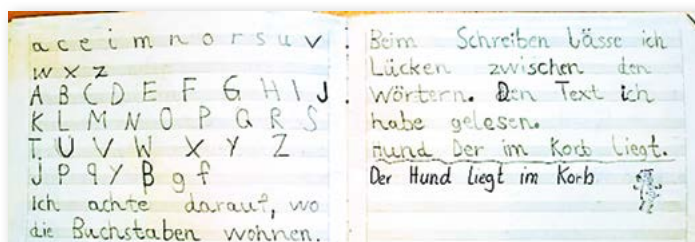 a c e i m n o r s u v
w x z
A B C D E F G H I J
K L M N O P Q R S
T U V W X Y Z
J P q y B g f
Ich achte darauf, wo
die Buchstaben wohnen.
Beim Schreiben lässe ich
Lücken zwischen den
Wörtern. Den Text ich
habe gelesen.
Hund Der im Korb liegt.
Der Hund liegt im Korb